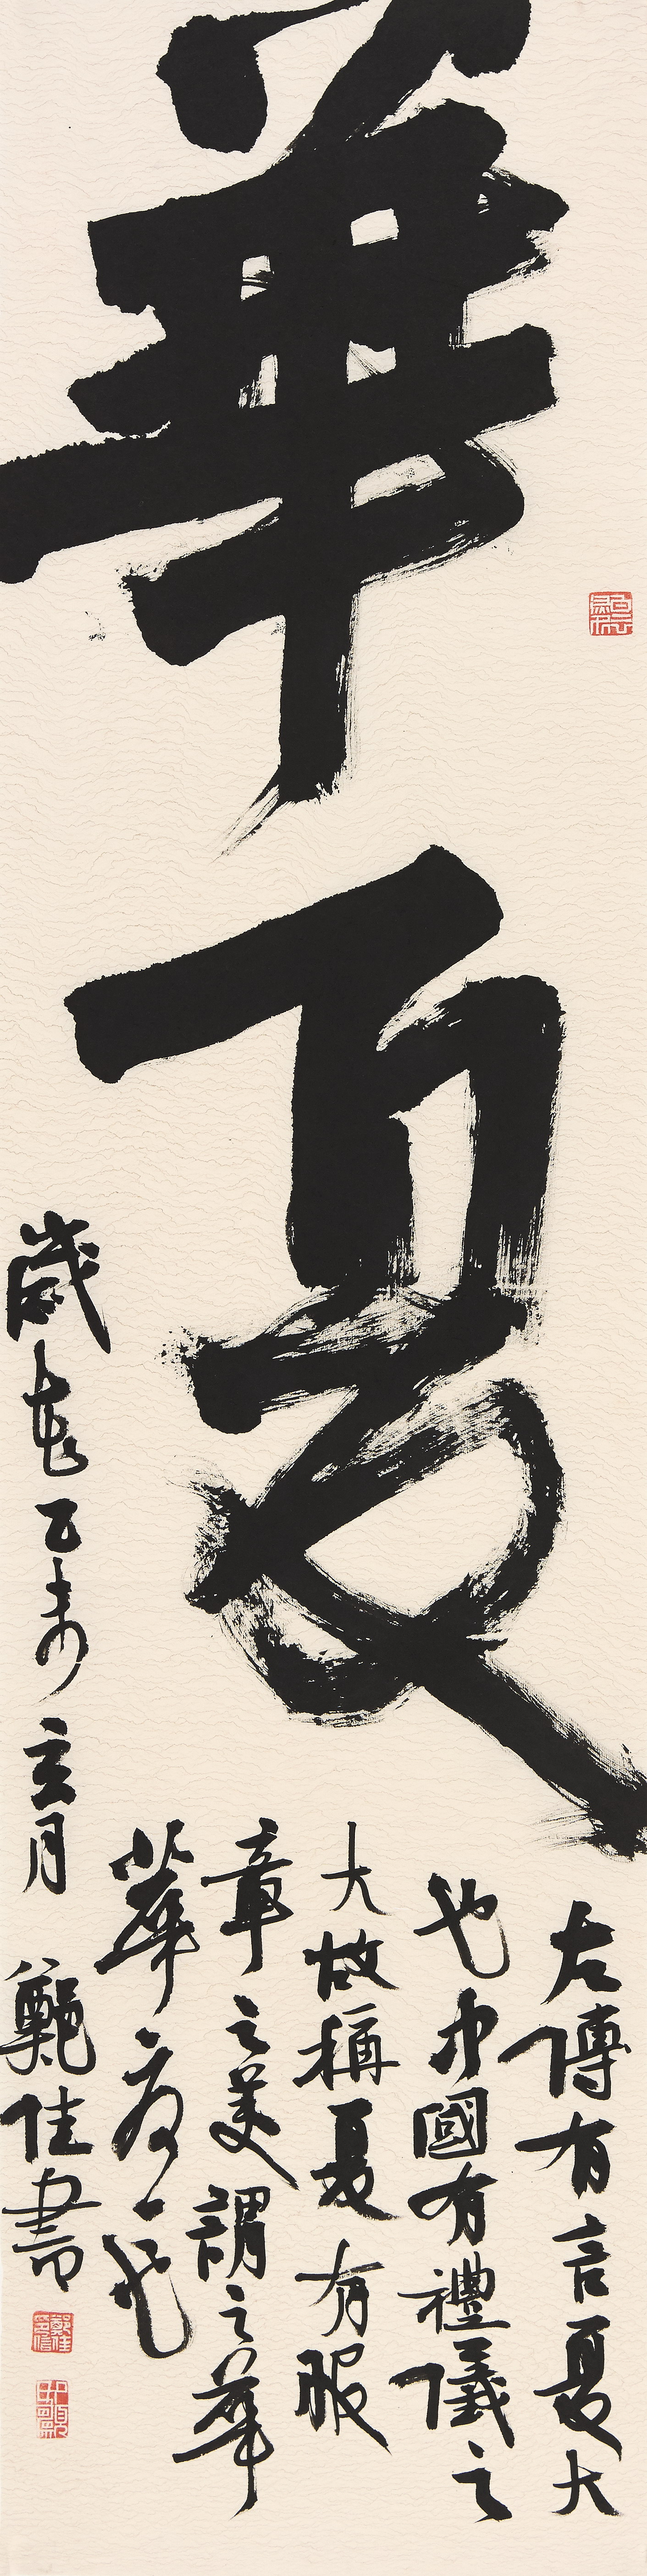 華夏
左傳有言夏大
也中國有禮儀之
大故稱夏有服
章之美謂之華
華夏一也
歲在乙未玄月
鄭佳書